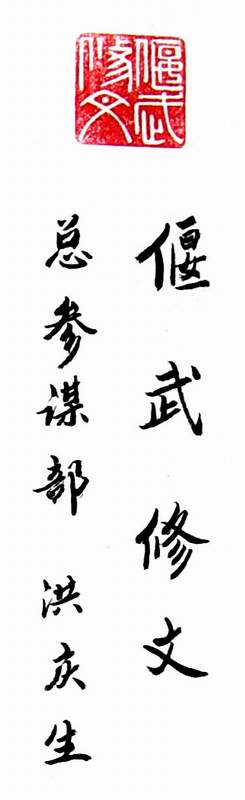 偃武
修文
偃武修文
总参谋部 洪庆生